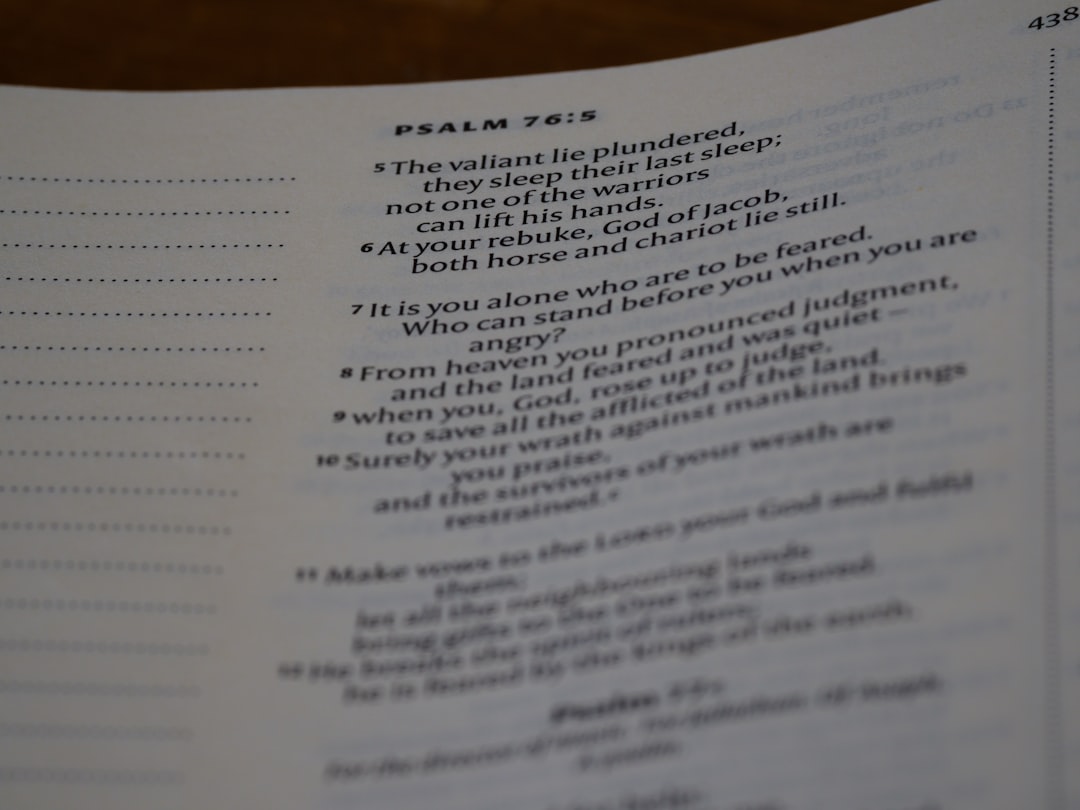 438
PSALM 76:5
5 The valiant lie plundered,
they sleep their last sleep;
not one of the warriors
can lift his hands.
6 At your rebuke, God of Jacob,
both horse and chariot lie still.
7 It is you alone who are to be feared.
Who can stand before you when you are
angry?
8 From heaven you pronounced judgment,
and the land feared and was quiet –
9 when you, God, rose up to judge,
to save all the afflicted of the land.
10 Surely your wrath against mankind brings
you praise,
and the survivors of your wrath are
restrained.
11 Make vows to the LORD your God and fulfil
them;
let all the neighbouring lands
bring gifts to the One to be feared.
12 He breaks the spirit of rulers;
he is feared by the kings of the earth.